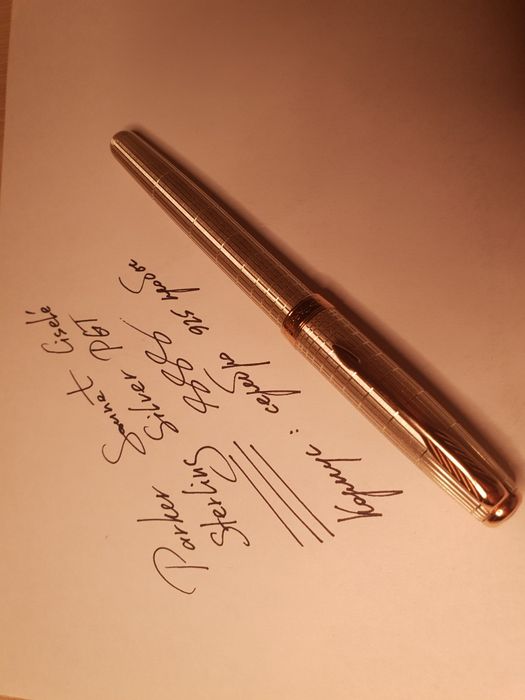 Parker Sonnet Ciselé
Sterling Silver PGT
Корпус: серебро 925 пробы